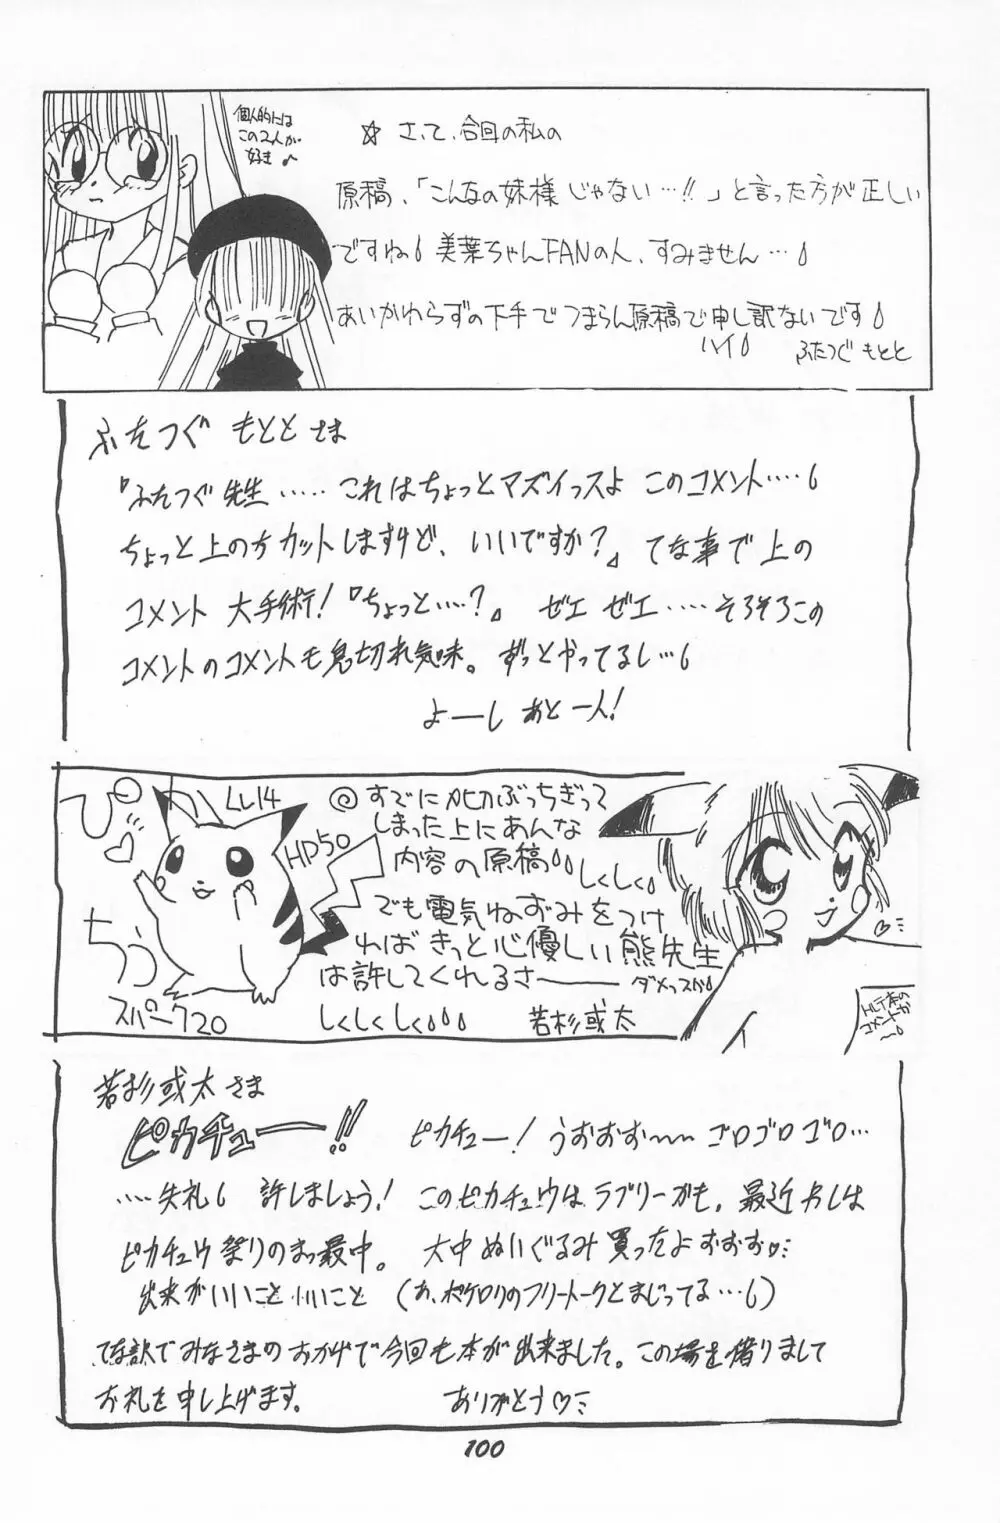 個人的には
この2人が
好き♪
☆ さて、今回の私の
原稿、「こんなの妹様じゃない…!!」と言った方が正しい
ですね 美葉ちゃんFANの人、すみません…
あいかわらずの下手でつまらん原稿で申し訳ないです
ハイ
ふたつぐ もとと
ふたつぐ もととさま
『ふたつぐ先生……これはちょっとマズイっスよ このコメント……
ちょっと上の方カットしますけど、いいですか?』てな事で上の
コメント 大手術!『ちょっと……?』 ゼエ ゼエ……そろそろこの
コメントのコメントも息切れ気味。ずっとやってるし…
よーし あと一人!
ぴ
Lv.14
HP50
ちう
スパーク20
◎すでに〆切ぶっちぎって
しまった上にあんな
内容の原稿
しくしく
でも電気ねずみをつけ
ればきっと心優しい熊先生
は許してくれるさ――
ダメっスか
しくしくしく
若杉或太
イ
コメントか
若杉或太さま
ピカチュー!!
ピカチュー! うおおお〜〜 ゴロゴロゴロ…
……失礼 許しましょう! このピカチュウはラブリーかも。最近わしは
ピカチュウ祭りのまっ最中。 大中ぬいぐるみ買ったよおおお♡
出来がいいこといいこと (あ、ポケロリのフリートークとまじってる…)
てな訳でみなさまのおかげで今回も本が出来ました。この場を借りまして
お礼を申し上げます。
ありがとう♡
100